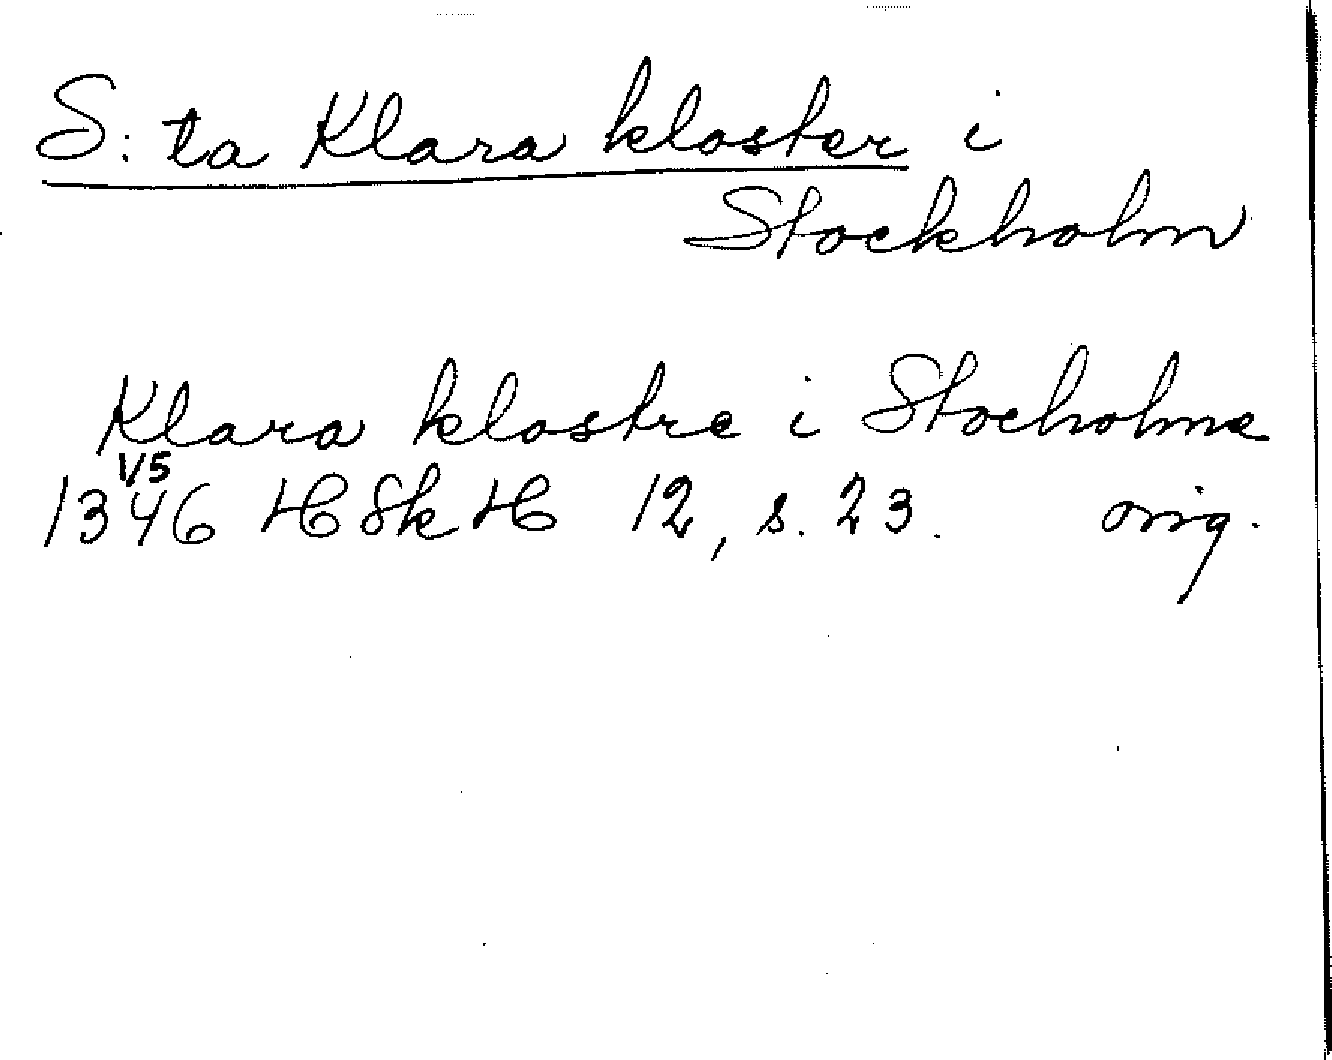 S:ta Klara kloster i
Stockholm
Klara klostre i Stocholme
1/5
1346 HSkH 12, s. 23. orig.